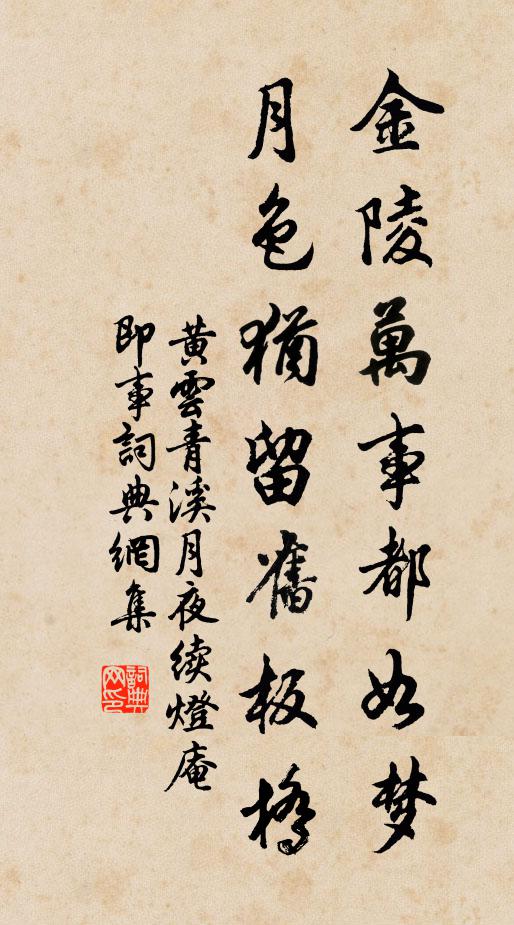 金陵萬事都如梦
月色猶留舊板橋
黃雲青溪月夜续燈庵
即事詞典網集
詞典网印